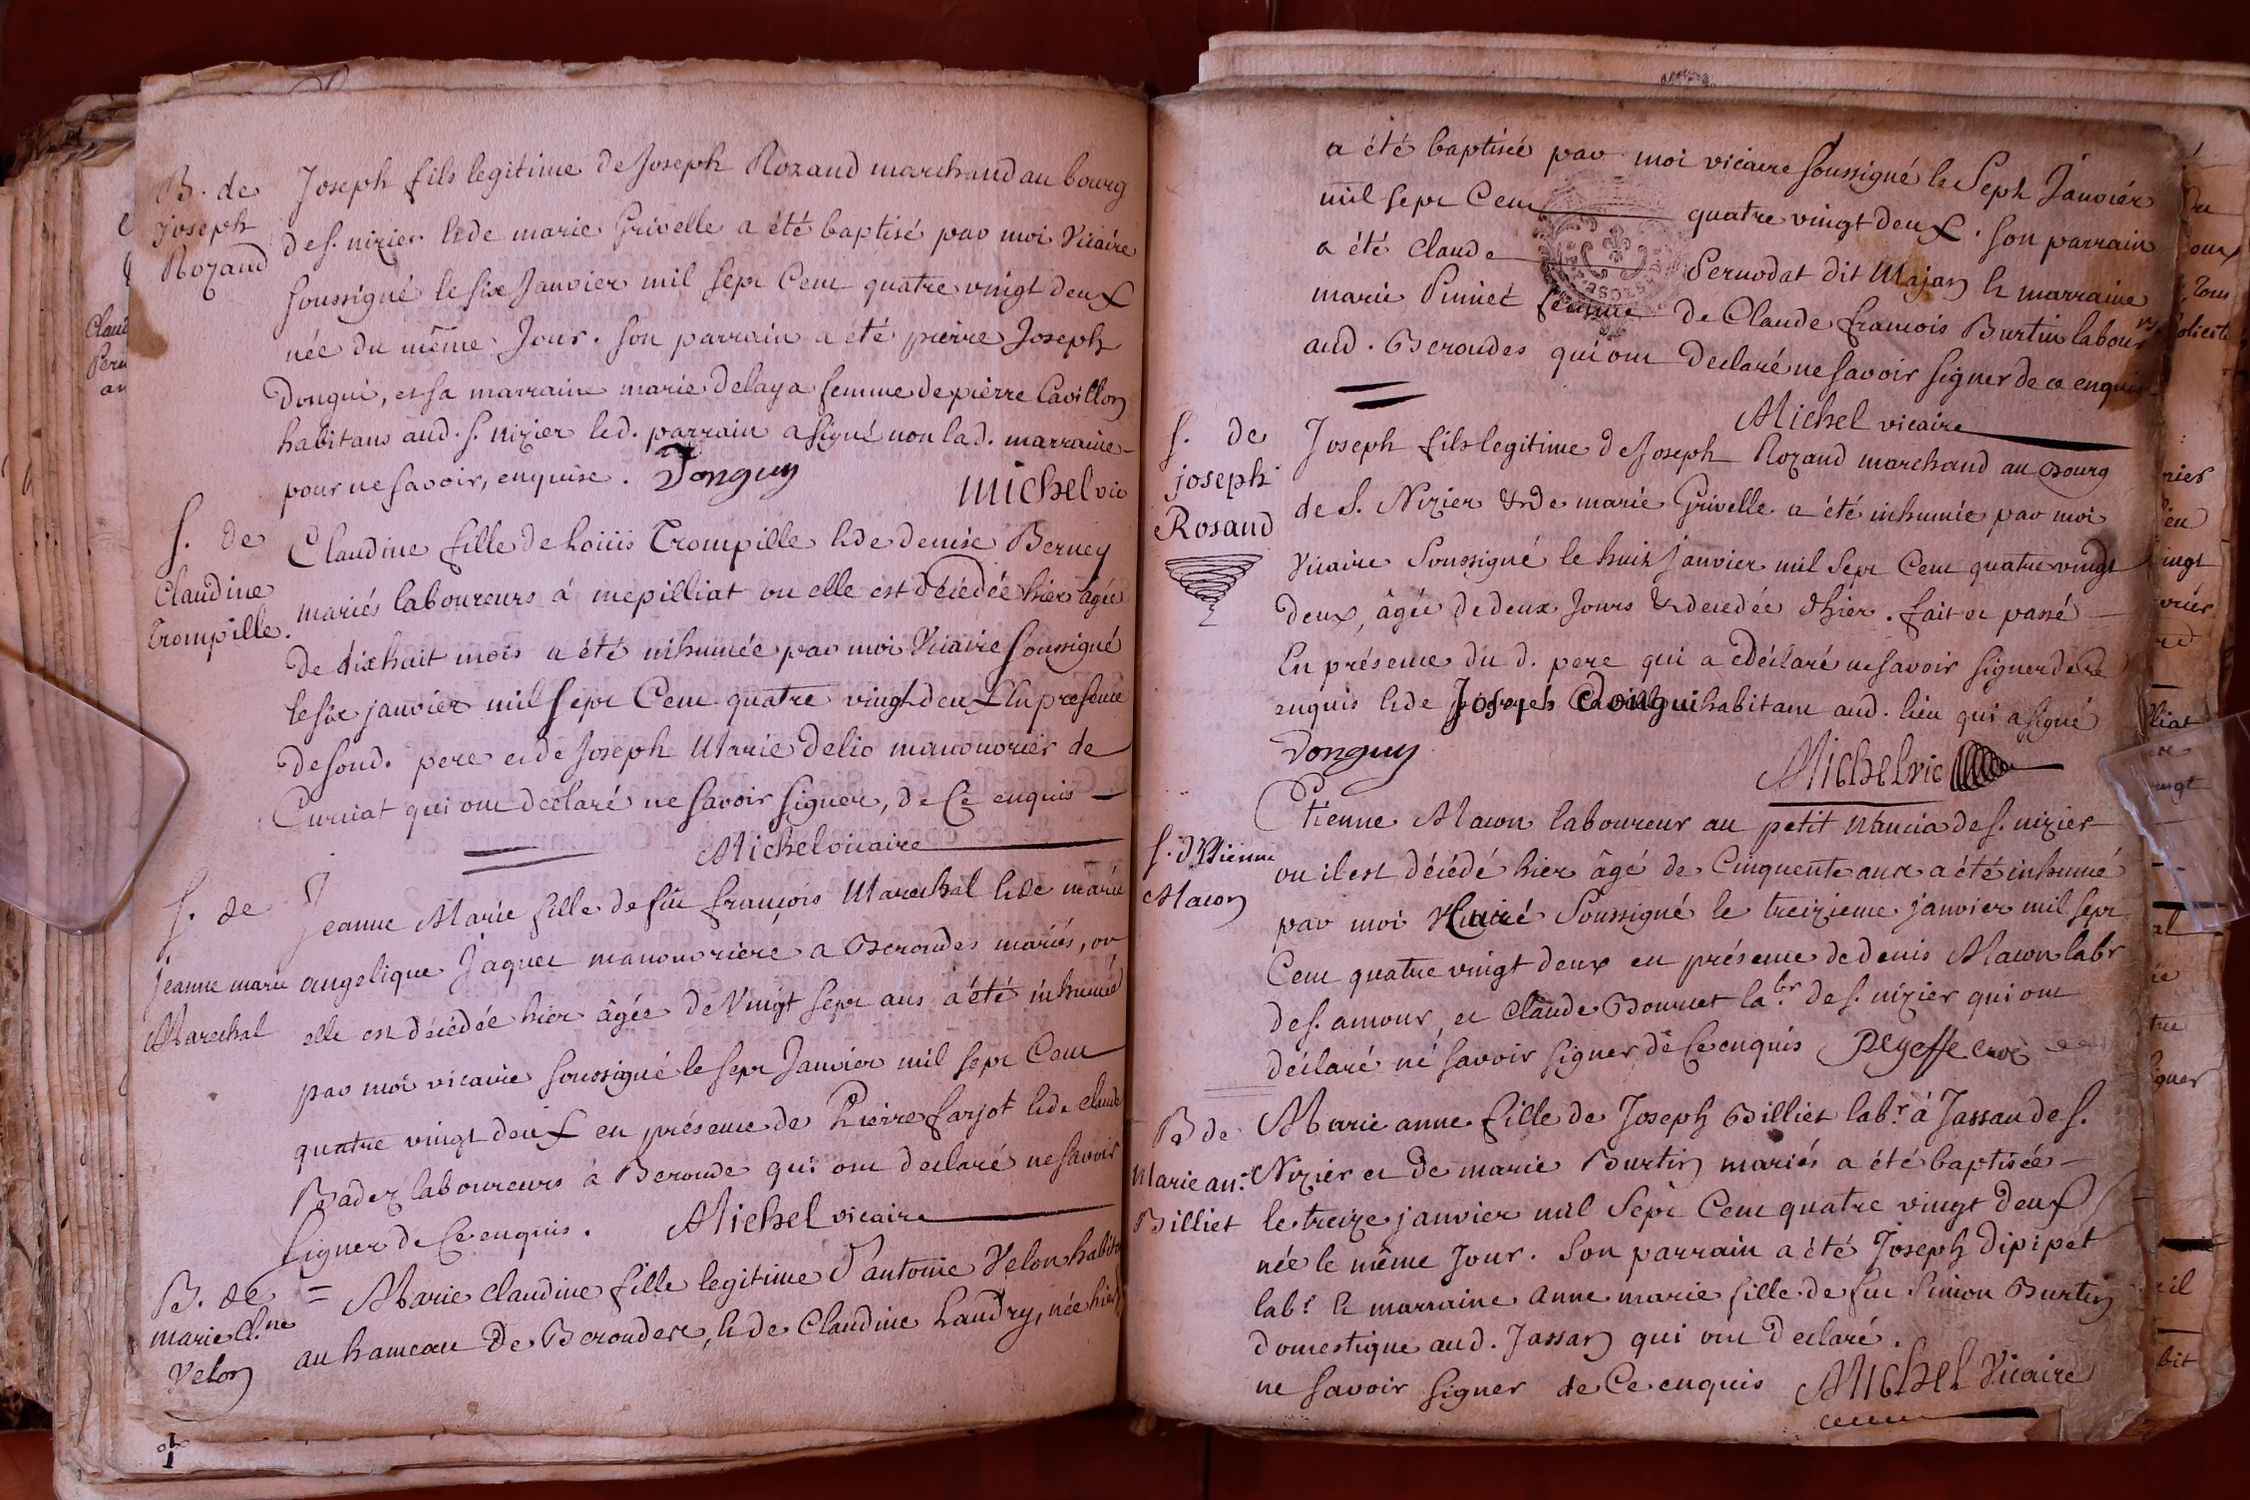 B. de
Joseph
Rozand
Joseph fils legitime de Joseph Rozand marchand au bourg
de s. nizier & de marie Grivelle a été baptisé par moi Vicaire
soussigné le six Janvier mil sept Cent quatre vingt deux
née du même Jour. son parrain a été pierre Joseph
Dongui, et sa marraine marie delaya femme de pierre Cavillon
habitans aud. s. nizier led. parrain a signé non lad. marraine
pour ne savoir, enquise. Donguy
Michel vic
s. de
Claudine
Trompille.
Claudine fille de Louis Trompille & de denise Berney
mariés laboureurs à mepilliat ou elle est décédée hier âgée
de dixhuit mois a été inhumée par moi Vicaire soussigné
le six janvier mil sept Cent quatre vingt deux En presence
de sond. pere et de Joseph Marie delio manouvrier de
Curciat qui ont declaré ne savoir signer, de Ce enquis
Michel vicaire
s. de
jeanne marie
Marechal
Jeanne Marie fille de fût françois Marechal & de marie
angelique Jaquet manouvriere a Beroudes mariés, ou
elle est décédée hier âgée de Vingt sept ans a été inhumé
par moi vicaire soussigné le sept Janvier mil sept Cent
quatre vingt deux en présence de Pierre farjot & de claude
Badez laboureurs à Beroude qui ont declaré ne savoir
signer de Ce enquis. Michel vicaire
B. de
marie Cl.ne
Velon
= Marie claudine fille legitime d'antoine Velon habit
au hameau de Berouder, & de Claudine Landry, née hier
a été baptisée par moi vicaire soussigné le Sept Janvier
mil sept Cent quatre vingt deux. son parrain
a été claude Pernodat dit Majan & marraine
marie Pinnet femme de Claude francois Burtin labour
aud. Beroudes qui ont declaré ne savoir signer de ce enquis
Michel vicaire
s. de
joseph
Rosand
Joseph fils legitime de Joseph Rozand marchand au Bourg
de S. Nizier & de marie Grivelle a été inhumée par moi
Vicaire Soussigné le huit janvier mil Sept Cent quatre vingt
deux, âgée de deux Jours & decedée d'hier. fait et passé
En présence du d. pere qui a déclaré ne savoir signer de ce
enquis & de Joseph dongui habitant aud. lieu qui a signé
Donguy
Michel vic
s. d'Etienne
Macon
Etienne Macon laboureur au petit Mancia de s. nizier
ou il est décédé hier âgé de Cinquente ans a été inhumé
par moi Curé Soussigné le treizieme janvier mil sept
Cent quatre vingt deux en présence de denis Macon labr
de s. amour, et Claude Bournet la.br de s. nizier qui ont
déclaré né savoir signer de Ce enquis
B de
Marie an.e
Billiet
Marie anne fille de Joseph Billiet lab.r à Jassan de s.
Nizier et de marie Burtin mariés a été baptisée
le treize janvier mil Sept Cent quatre vingt deux
née le même Jour. Son parrain a été Joseph dipipet
lab.r & marraine anne marie fille de fut Simon Burtin
domestique aud. Jassan qui ont declaré.
ne savoir signer de Ce enquis Michel Vicaire